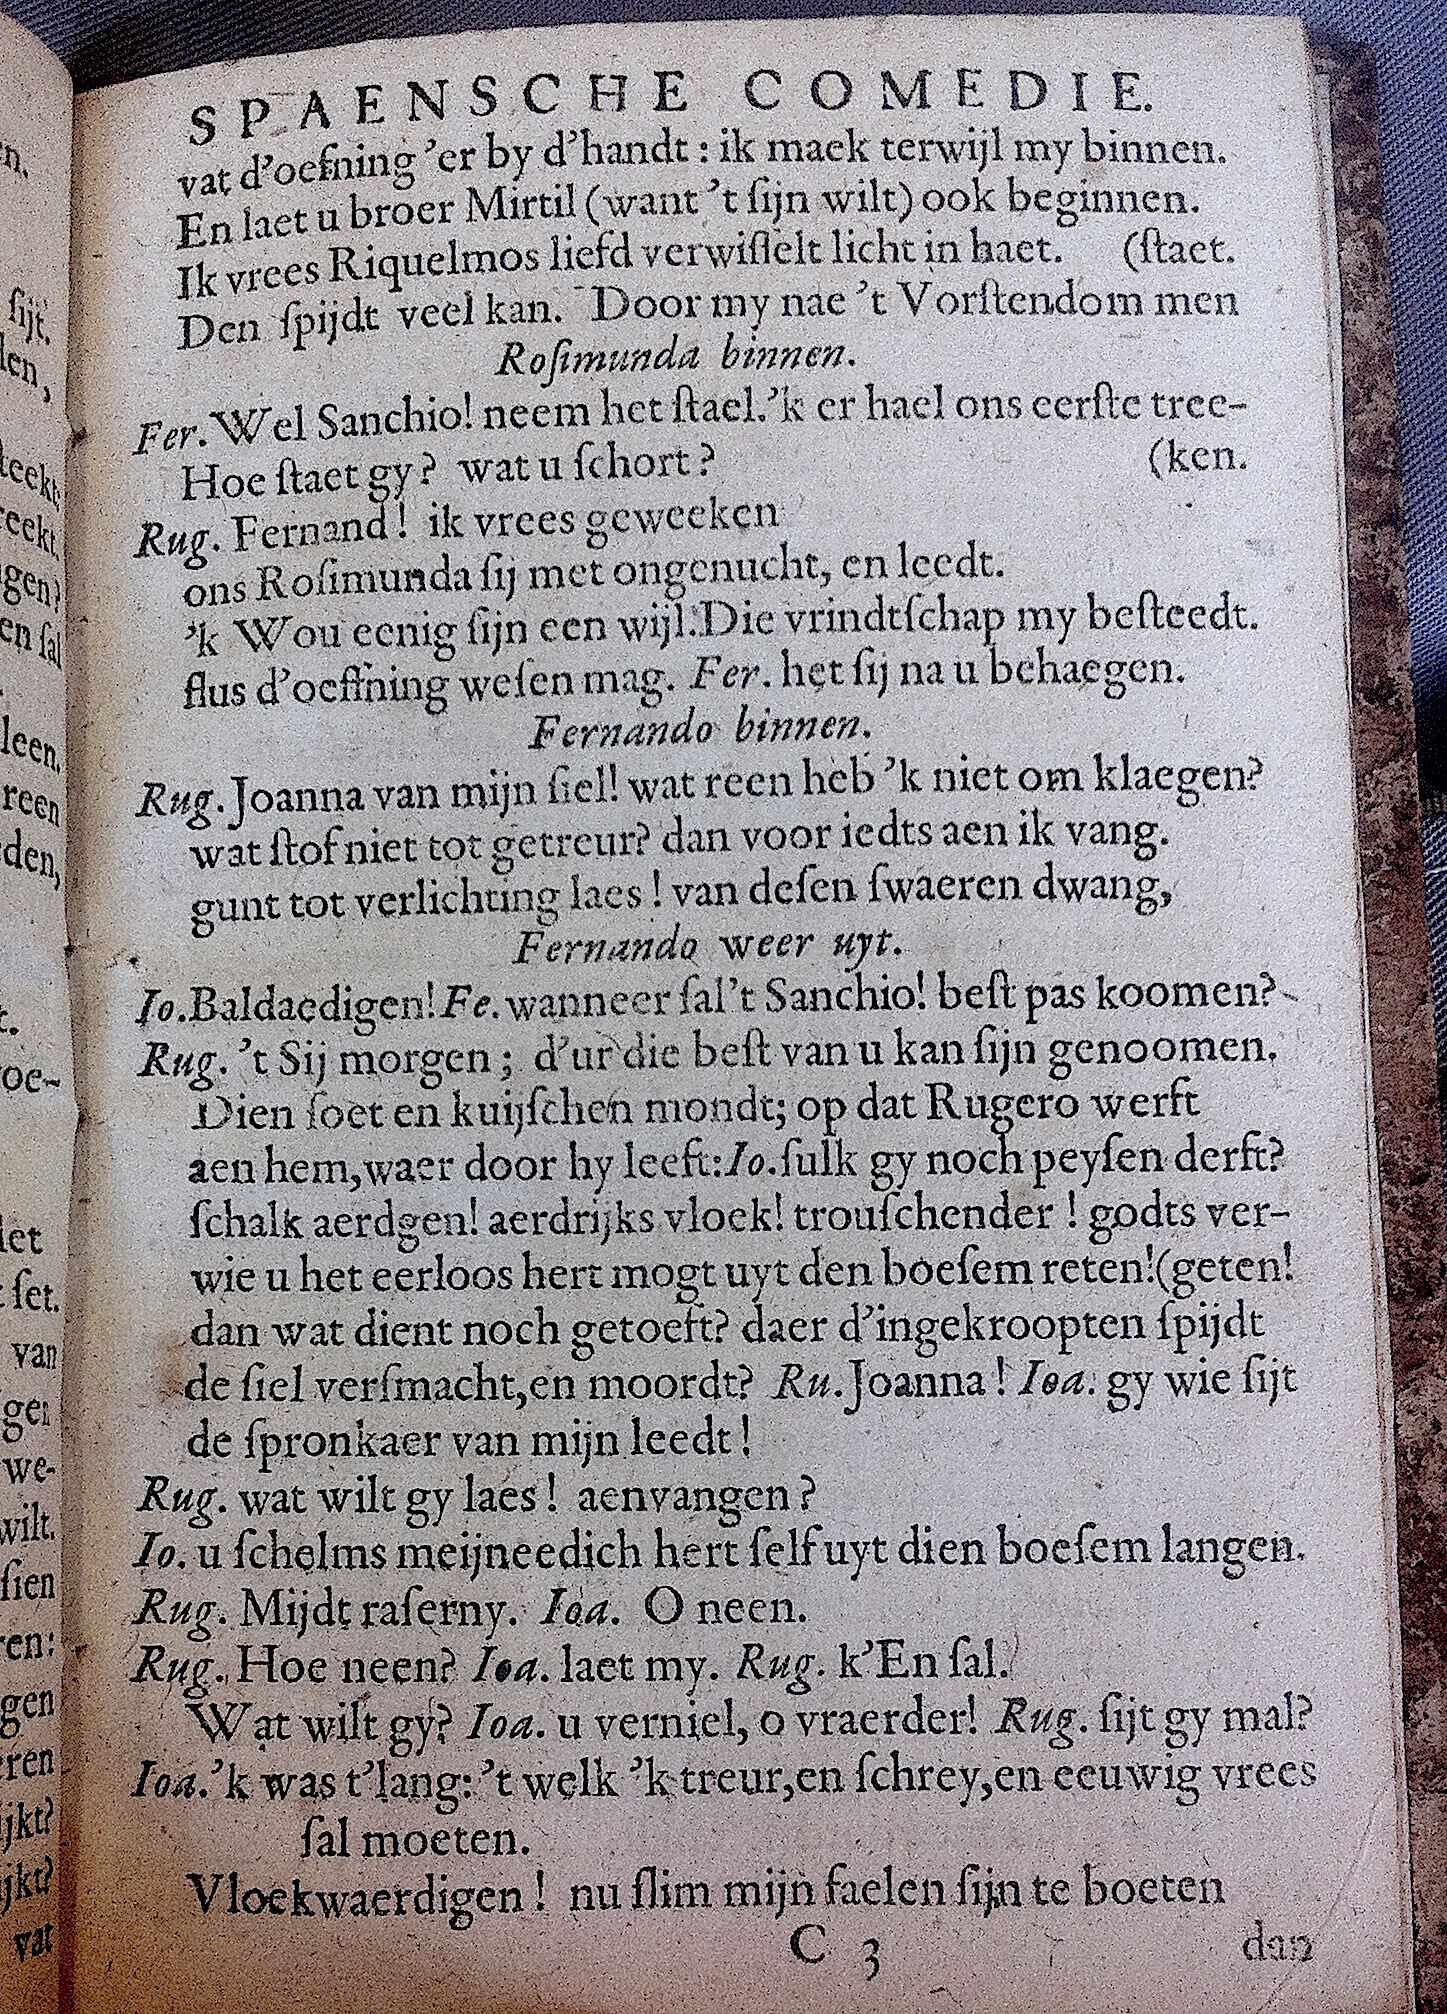 SPAENSCHE COMEDIE.
vat d'oefning 'er by d'handt: ik maek terwijl my binnen.
En laet u broer Mirtil (want 't ſijn wilt) ook beginnen.
Ik vrees Riquelmos liefd verwiſſelt licht in haet. (ſtaet.
Den ſpijdt veel kan. Door my nae 't Vorſtendom men
Roſimunda binnen.
Fer. Wel Sanchio! neem het ſtael. 'k er hael ons eerſte tree-
Hoe ſtaet gy? wat u ſchort? (ken.
Rug. Fernand! ik vrees geweeken
ons Roſimunda ſij met ongenucht, en leedt.
'k Wou eenig ſijn een wijl. Die vrindtſchap my beſteedt.
flus d'oeffning weſen mag. Fer. het ſij na u behaegen.
Fernando binnen.
Rug. Joanna van mijn ſiel! wat reen heb 'k niet om klaegen?
wat ſtof niet tot getreur? dan voor iedts aen ik vang.
gunt tot verlichting laes! van deſen ſwaeren dwang,
Fernando weer uyt.
Io. Baldaedigen! Fe. wanneer ſal't Sanchio! beſt pas koomen?
Rug. 't Sij morgen; d'ur die beſt van u kan ſijn genoomen.
Dien ſoet en kuijſchen mondt; op dat Rugero werft
aen hem, waer door hy leeft: Io. ſulk gy noch peyſen derft?
ſchalk aerdgen! aerdrijks vloek! trouſchender! godts ver-
wie u het eerloos hert mogt uyt den boeſem reten! (geten!
dan wat dient noch getoeft? daer d'ingekroopten ſpijdt
de ſiel verſmacht, en moordt? Ru. Joanna! Ioa. gy wie ſijt
de ſpronkaer van mijn leedt!
Rug. wat wilt gy laes! aenvangen?
Io. u ſchelms meijneedich hert ſelf uyt dien boeſem langen.
Rug. Mijdt raſerny. Ioa. O neen.
Rug. Hoe neen? Ioa. laet my. Rug. k'En ſal.
Wat wilt gy? Ioa. u verniel, o vraerder! Rug. ſijt gy mal?
Ioa. 'k was t'lang: 't welk 'k treur, en ſchrey, en eeuwig vrees
ſal moeten.
Vloekwaerdigen! nu ſlim mijn faelen ſijn te boeten
C 3 dan